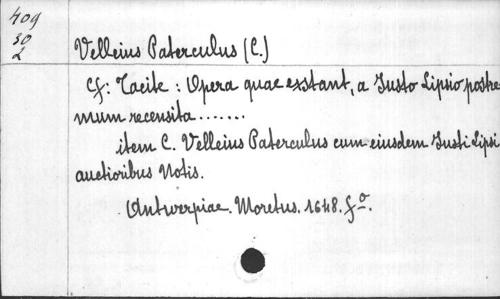 409
30
2
Velleius Paterculus (C.)
Cf: Tacite : Opera quae exstant, a Justo Lipsio postre
mum recensita .......
item C. Velleius Paterculus cum eiusdem Justi Lipsi
auctioribus Notis.
Antwerpiae. Moretus. 1648. fo.